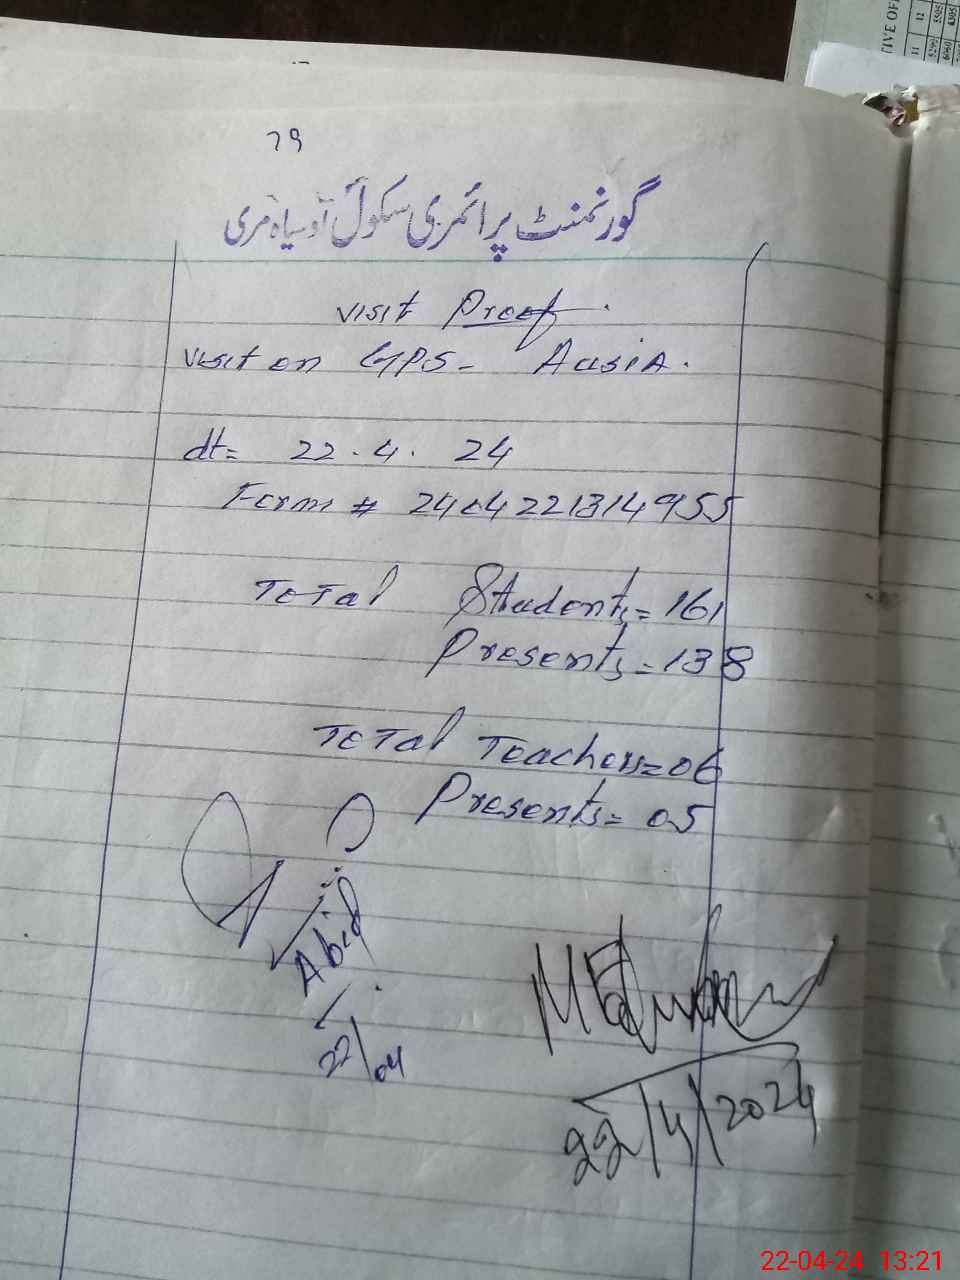 79
گورنمنٹ پرائمری سکول اوسیاہ مری
visit Proof.
visit on GPS- Ausia.
dt= 22.4.24
Form # 240422131 4955
Total Students=161
Presents=138
Total Teachers=06
Presents=05
Abid
22/04
22/4/2024
22-04-24 13:21